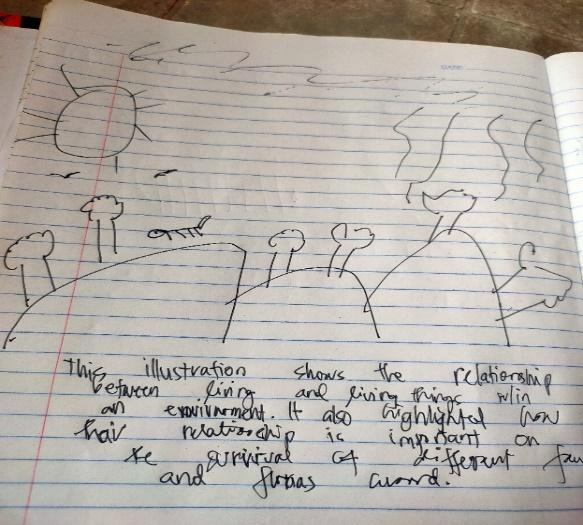 This illustration shows the relationship
between living and living things w/in
an enviivnement. It also highlighted how
thair relationship is important on
the survival of different fau
and floras